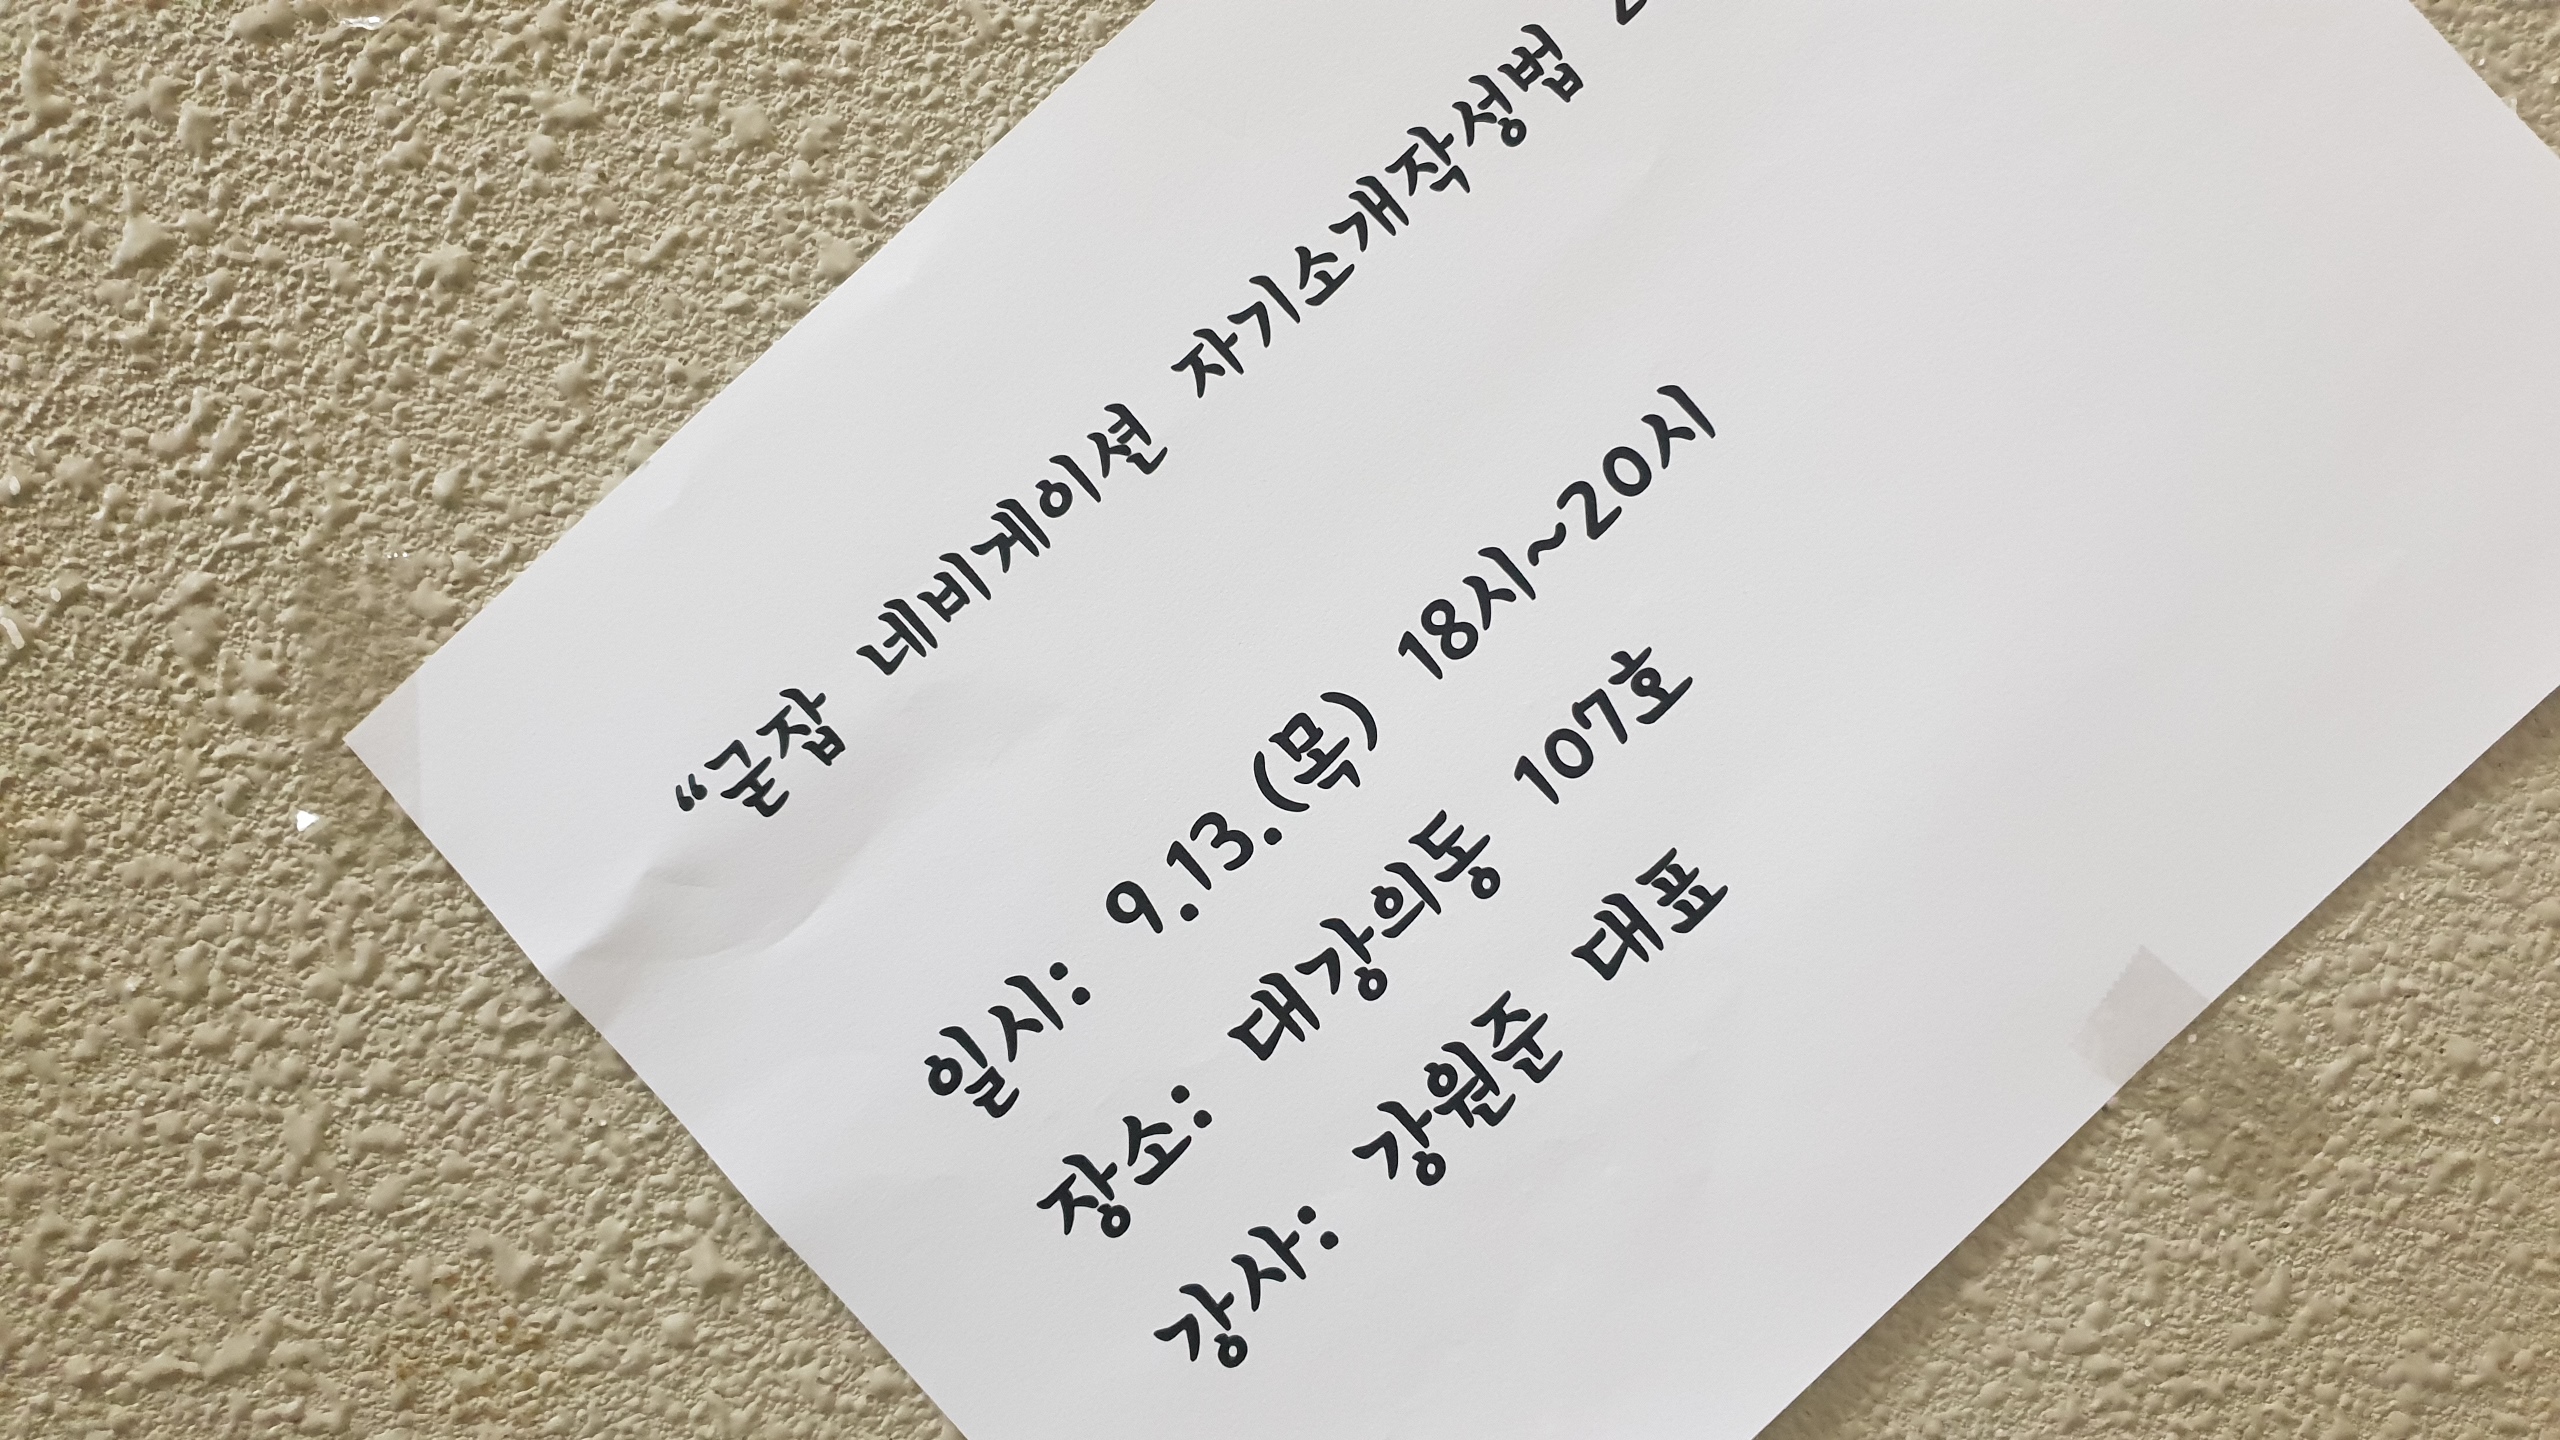 “굳잡 네비게이션 자기소개작성법
일시: 9.13.(목) 18시~20시
장소: 대강의동 107호
강사: 강원준 대표